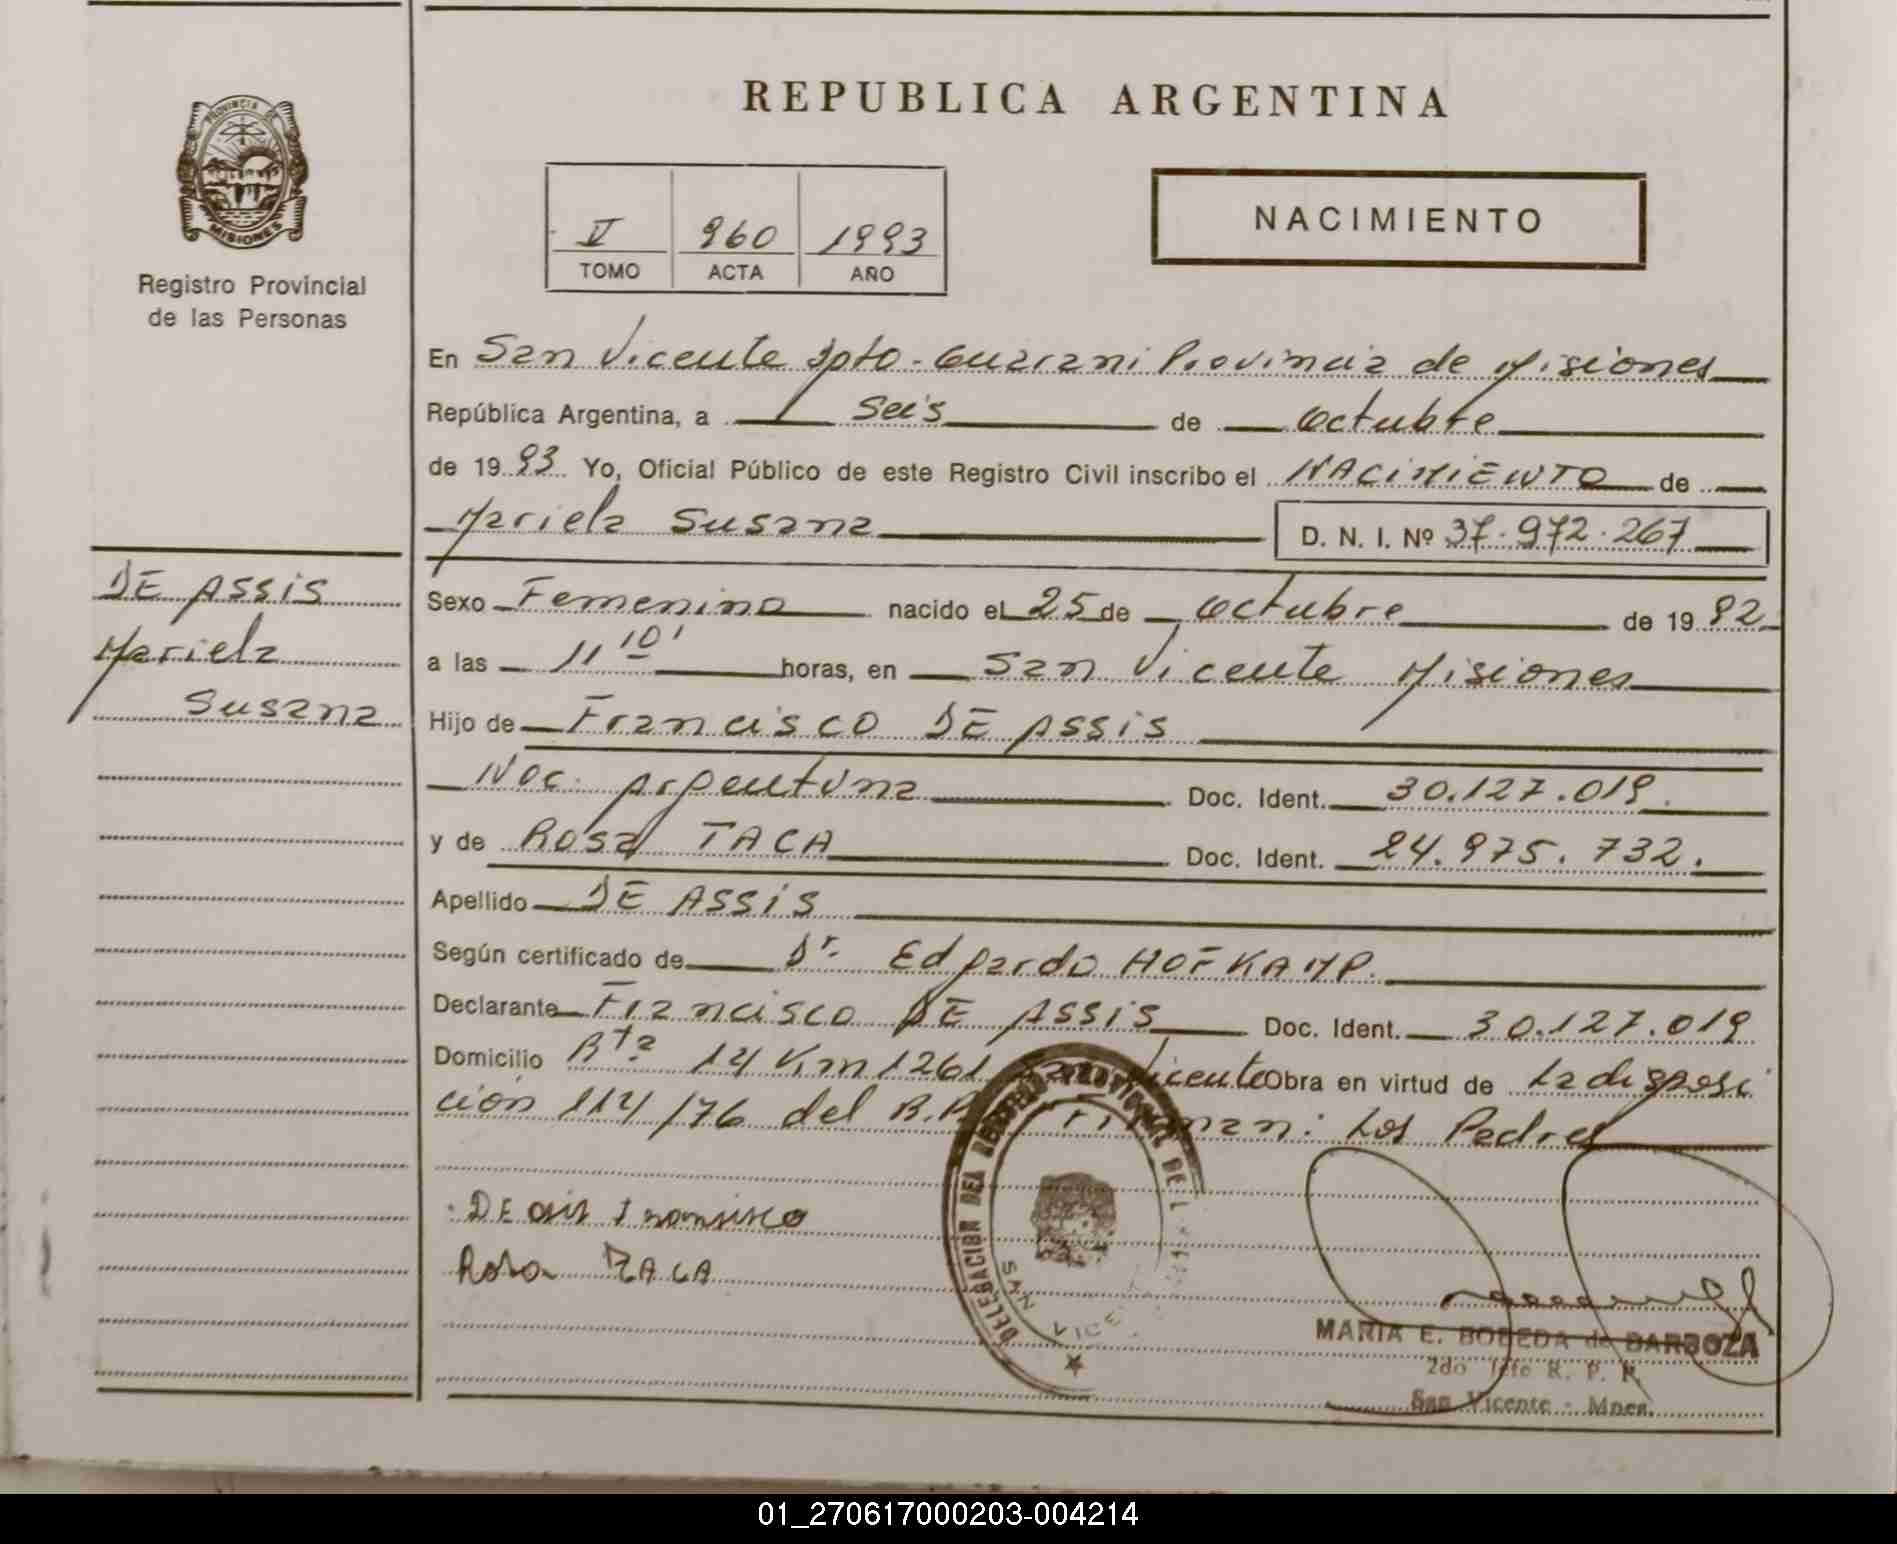 REPUBLICA ARGENTINA
PROVINCIA DE
MISIONES
Registro Provincial
de las Personas
V 960 1993
TOMO ACTA AÑO
NACIMIENTO
En San Vicente Dpto. Guarani Provincia de Misiones
República Argentina, a Seis de octubre
de 1993 Yo, Oficial Público de este Registro Civil inscribo el NACIMIENTO de
Mariela Susana D. N. I. Nº 37.972.267
DE ASSIS
Mariela
Susana
Sexo Femenino nacido el 25 de octubre de 1992
a las 11 10' horas, en San Vicente Misiones
Hijo de Francisco DE ASSIS
Nac. Argentina Doc. Ident. 30.127.019.
y de Rosa TACA Doc. Ident. 24.975.732.
Apellido DE ASSIS
Según certificado de Dr. Edgardo HOFKAMP.
Declarante Francisco DE ASSIS Doc. Ident. 30.127.019
Domicilio Rta 14 Km 1261 San Vicente Obra en virtud de la disposi
ción 114/76 del Firman: Los Padres
DELEGACION DEL REGISTRO PROVINCIAL DE
SAN VICENTE
DE asis Fransisco
Rosa TACA
MARIA E. BOBEDA de BARBOZA
2do Jefe R. P. P.
San Vicente - Mnes.
01_270617000203-004214